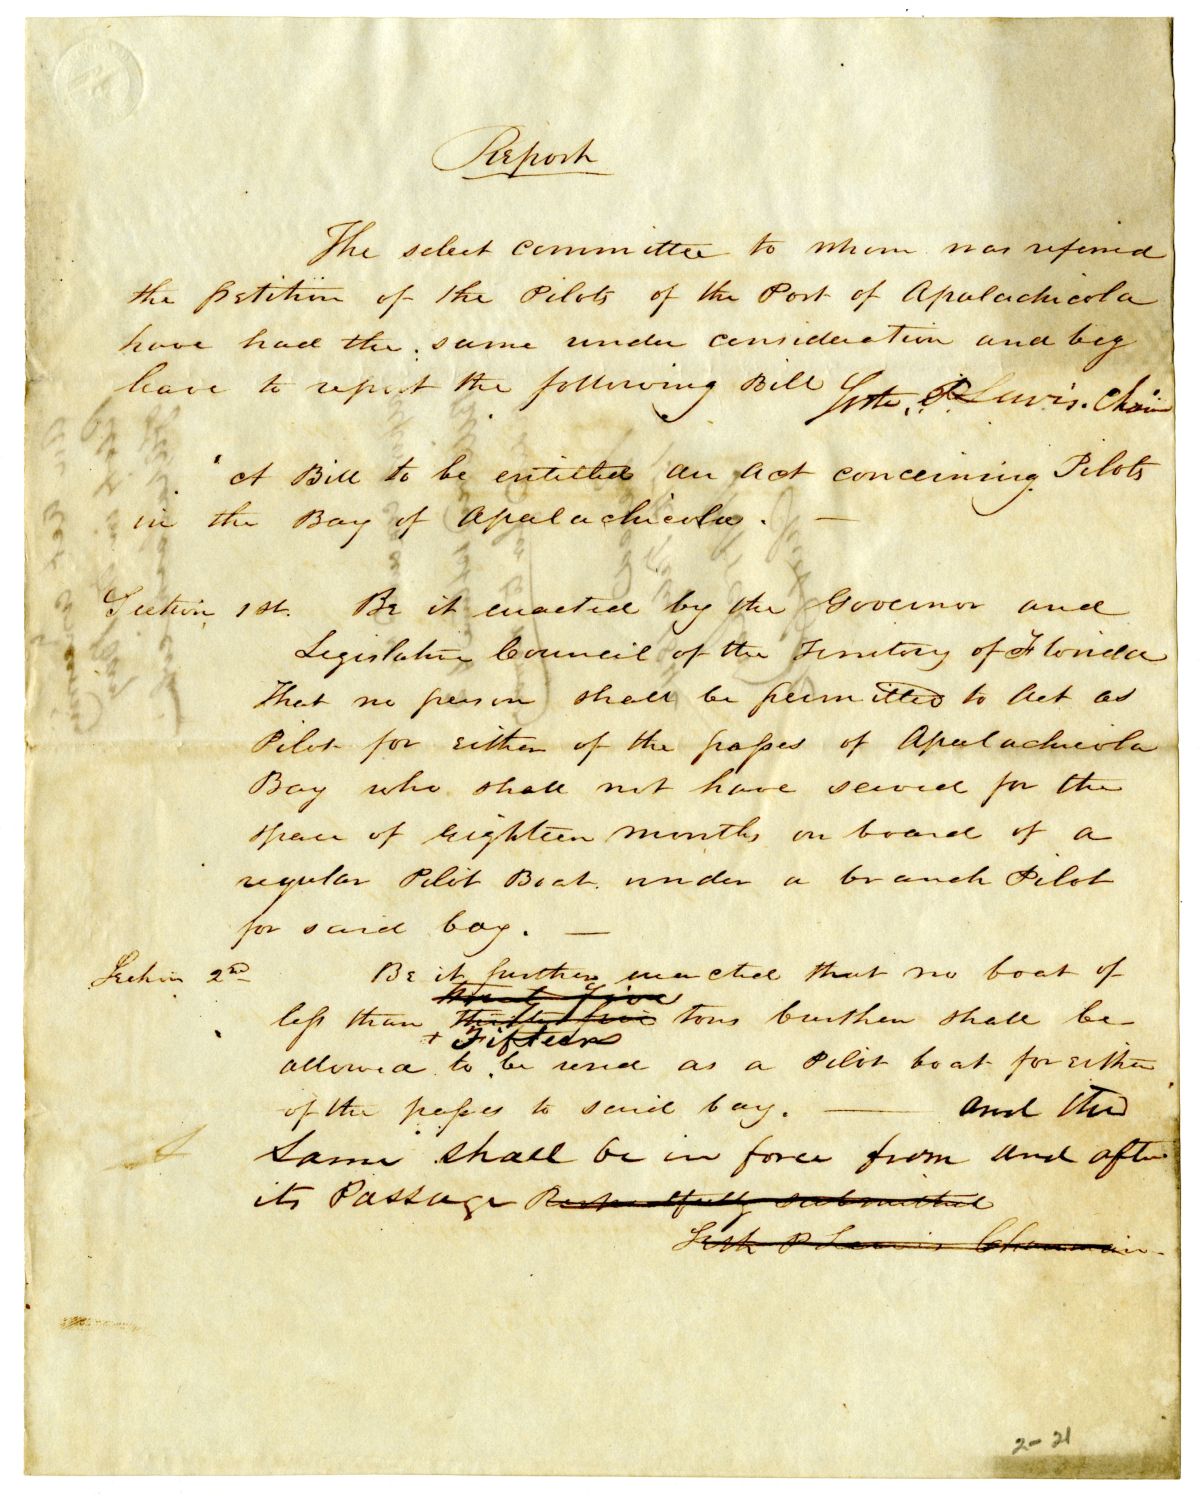 Report
The select committee to whom was referred
the petition of the Pilots of the Port of Apalachicola
have had the same under consideration and beg
leave to report the following Bill Seth P Lewis. Chair
A Bill to be entitled an act concerning Pilots
in the Bay of Apalachicola. —
Section 1st. Be it enacted by the Governor and
Legislative Council of the Territory of Florida
That no person shall be permitted to act as
Pilot for either of the passes of Apalachicola
Bay who shall not have served for the
space of eighteen months on board of a
regular Pilot Boat under a branch Pilot
for said bay. —
Section 2nd Be it further enacted that no boat of
less than tons burthen shall be
+ Fifteen
allowed to be used as a Pilot boat for either
of the passes to said bay. — and the
Same shall be in force from and after
its Passage Respectfully submitted
Seth P Lewis Chairman
2-21